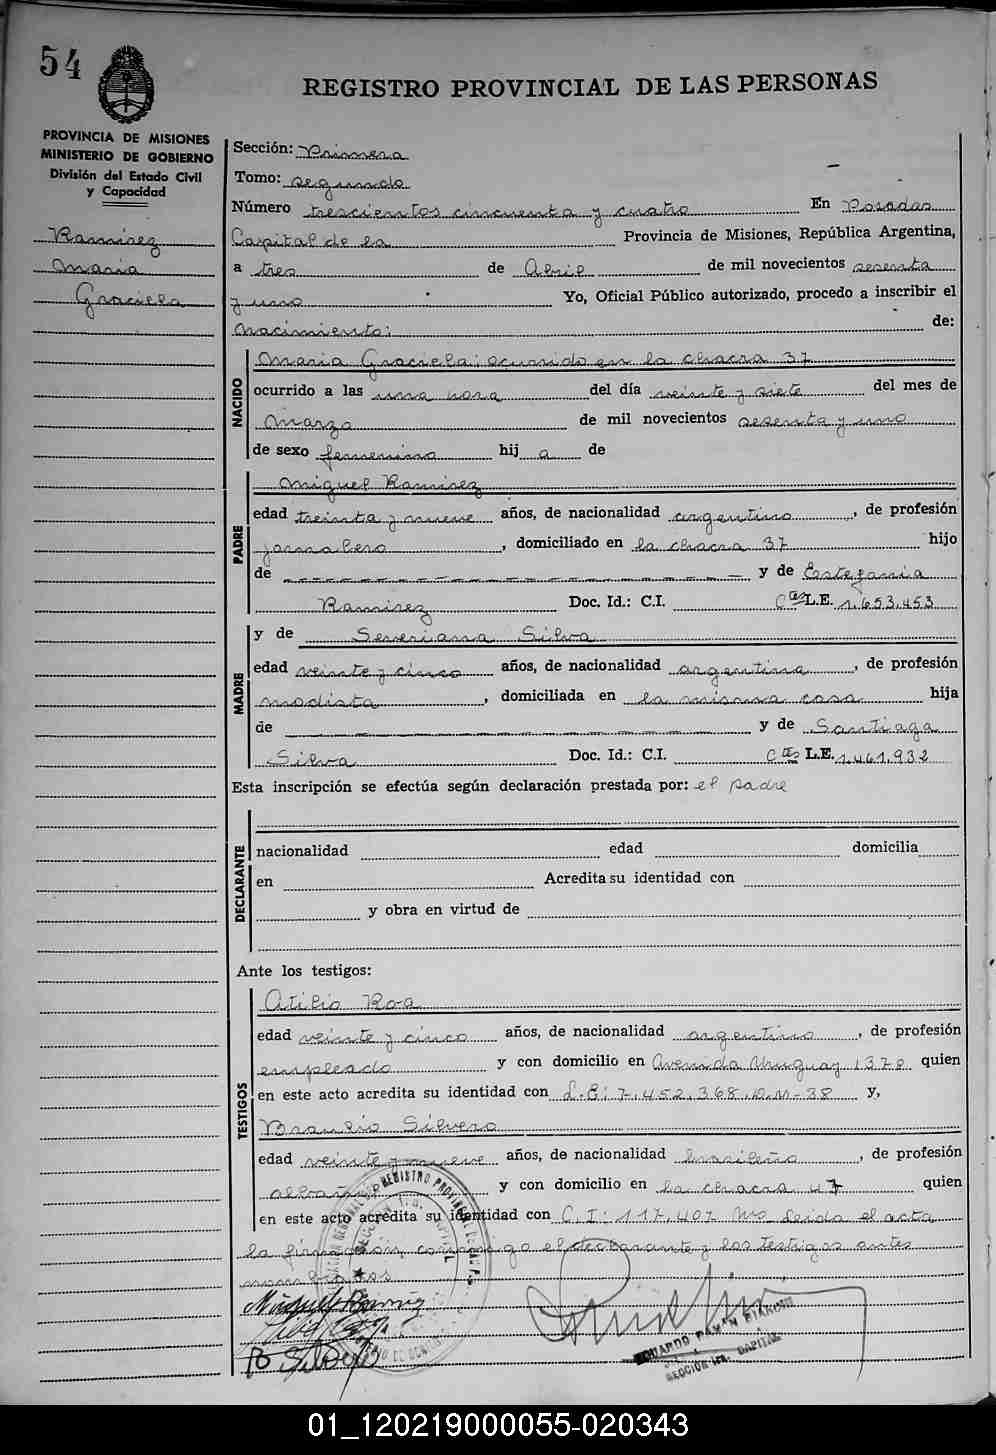 54
REGISTRO PROVINCIAL DE LAS PERSONAS
PROVINCIA DE MISIONES
MINISTERIO DE GOBIERNO
División del Estado Civil
y Capacidad
Ramirez
Maria
Graciela
Sección: Primera
Tomo: segundo
Número trescientos cincuenta y cuatro En Posadas
Capital de la Provincia de Misiones, República Argentina,
a tres de Abril de mil novecientos sesenta
y uno Yo, Oficial Público autorizado, procedo a inscribir el
nacimiento: de:
NACIDO
Maria Graciela: ocurrido en la chacra 37
ocurrido a las una hora del día veinte y siete del mes de
Marzo de mil novecientos sesenta y uno
de sexo femenino hij a de
PADRE
Miguel Ramirez
edad treinta y nueve años, de nacionalidad argentino, de profesión
jornalero, domiciliado en la chacra 37 hijo
de y de Estefania
Ramirez Doc. Id.: C.I. L.E. 1.653.453
MADRE
y de Severiana Silva
edad veinte y cinco años, de nacionalidad argentina, de profesión
modista, domiciliada en la misma casa hija
de y de Santiaga
Silva Doc. Id.: C.I. L.E. 1.461.932
Esta inscripción se efectúa según declaración prestada por: el padre
DECLARANTE
nacionalidad edad domicilia
en Acredita su identidad con
y obra en virtud de
Ante los testigos:
TESTIGOS
Atilio Roa
edad veinte y cinco años, de nacionalidad argentino, de profesión
empleado y con domicilio en Avenida Uruguay 1378 quien
en este acto acredita su identidad con L.E: 7.452.368.D.M-38 y,
Braulio Silvero
edad veinte y nueve años, de nacionalidad brasileño, de profesión
albañil y con domicilio en la chacra 47 quien
en este acto acredita su identidad con C.I: 117.407 Mo Leida el acta
la firmaron conmigo el declarante y los testigos antes
nombrados
EDUARDO RAMÓN BIANCHI
SECCIÓN 1ra. CAPITAL
01_120219000055-020343